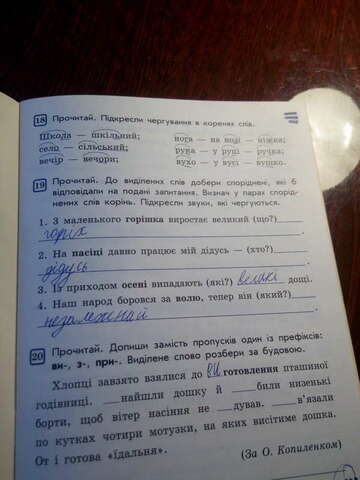 18 Прочитай. Підкресли чергування в коренях слів.
Школа — шкільний; нога — на нозі — ніжка;
село — сільський; рука — у руці — ручка;
вечір — вечори; вухо — у вусі — вушко.
19 Прочитай. До виділених слів добери споріднені, які б
відповідали на подані запитання. Визнач у парах спорід-
нених слів корінь. Підкресли звуки, які чергуються.
1. З маленького горішка виростає великий (що?)
горіх
2. На пасіці давно працює мій дідусь — (хто?)
дідусь
3. Із приходом осені випадають (які?) великі дощі.
4. Наш народ боровся за волю, тепер він (який?)
незалежний
20 Прочитай. Допиши замість пропусків один із префіксів:
ви-, з-, при-. Виділене слово розбери за будовою.
Хлопці завзято взялися до ви готовлення пташиної
годівниці. ___найшли дошку й ___били низенькі
борти, щоб вітер насіння не ___дував. ___в'язали
по кутках чотири мотузки, на яких висітиме дошка.
От і готова «їдальня».
(За О. Копиленком)